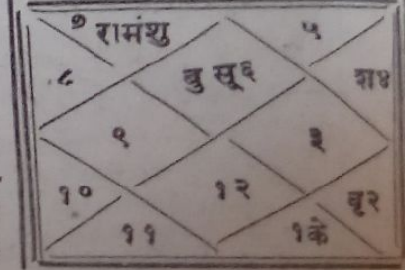 ७ रामंशु ५
८ बु सू ६ श४
९ ३
१० १२ बृ२
११ १के